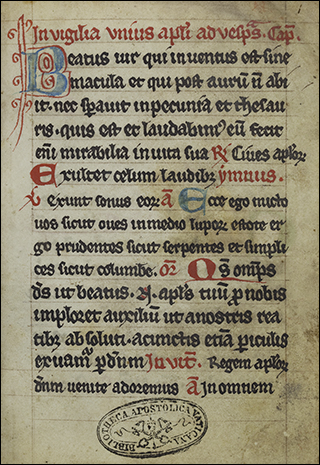 In vigilia unius apli ad vesps. Cap.
Beatus uir qui inuentus est sine
macula et qui post auru n abi
it. nec spauit in pecunia et thesau
ris. quis est et laudabim eu fecit
eni mirabilia in uita sua R Ciues aplor
Exultet celum laudibz ymnus.
exunt sonus eor A Ecce ego mitto
uos sicut oues in medio lupor estote er
go prudentes sicut serpentes et simpli
ces sicut columbe. Or Qs omps
ds ut beatus. N. apls tuus p nobis
imploret auxiliu ut a nostris rea
tibz absoluti. a cunctis etia piculis
exuam p dnm Inuit. Regem aplor
dnm uenite adoremus A In omnem
BIBLIOTHECA APOSTOLICA VATICANA